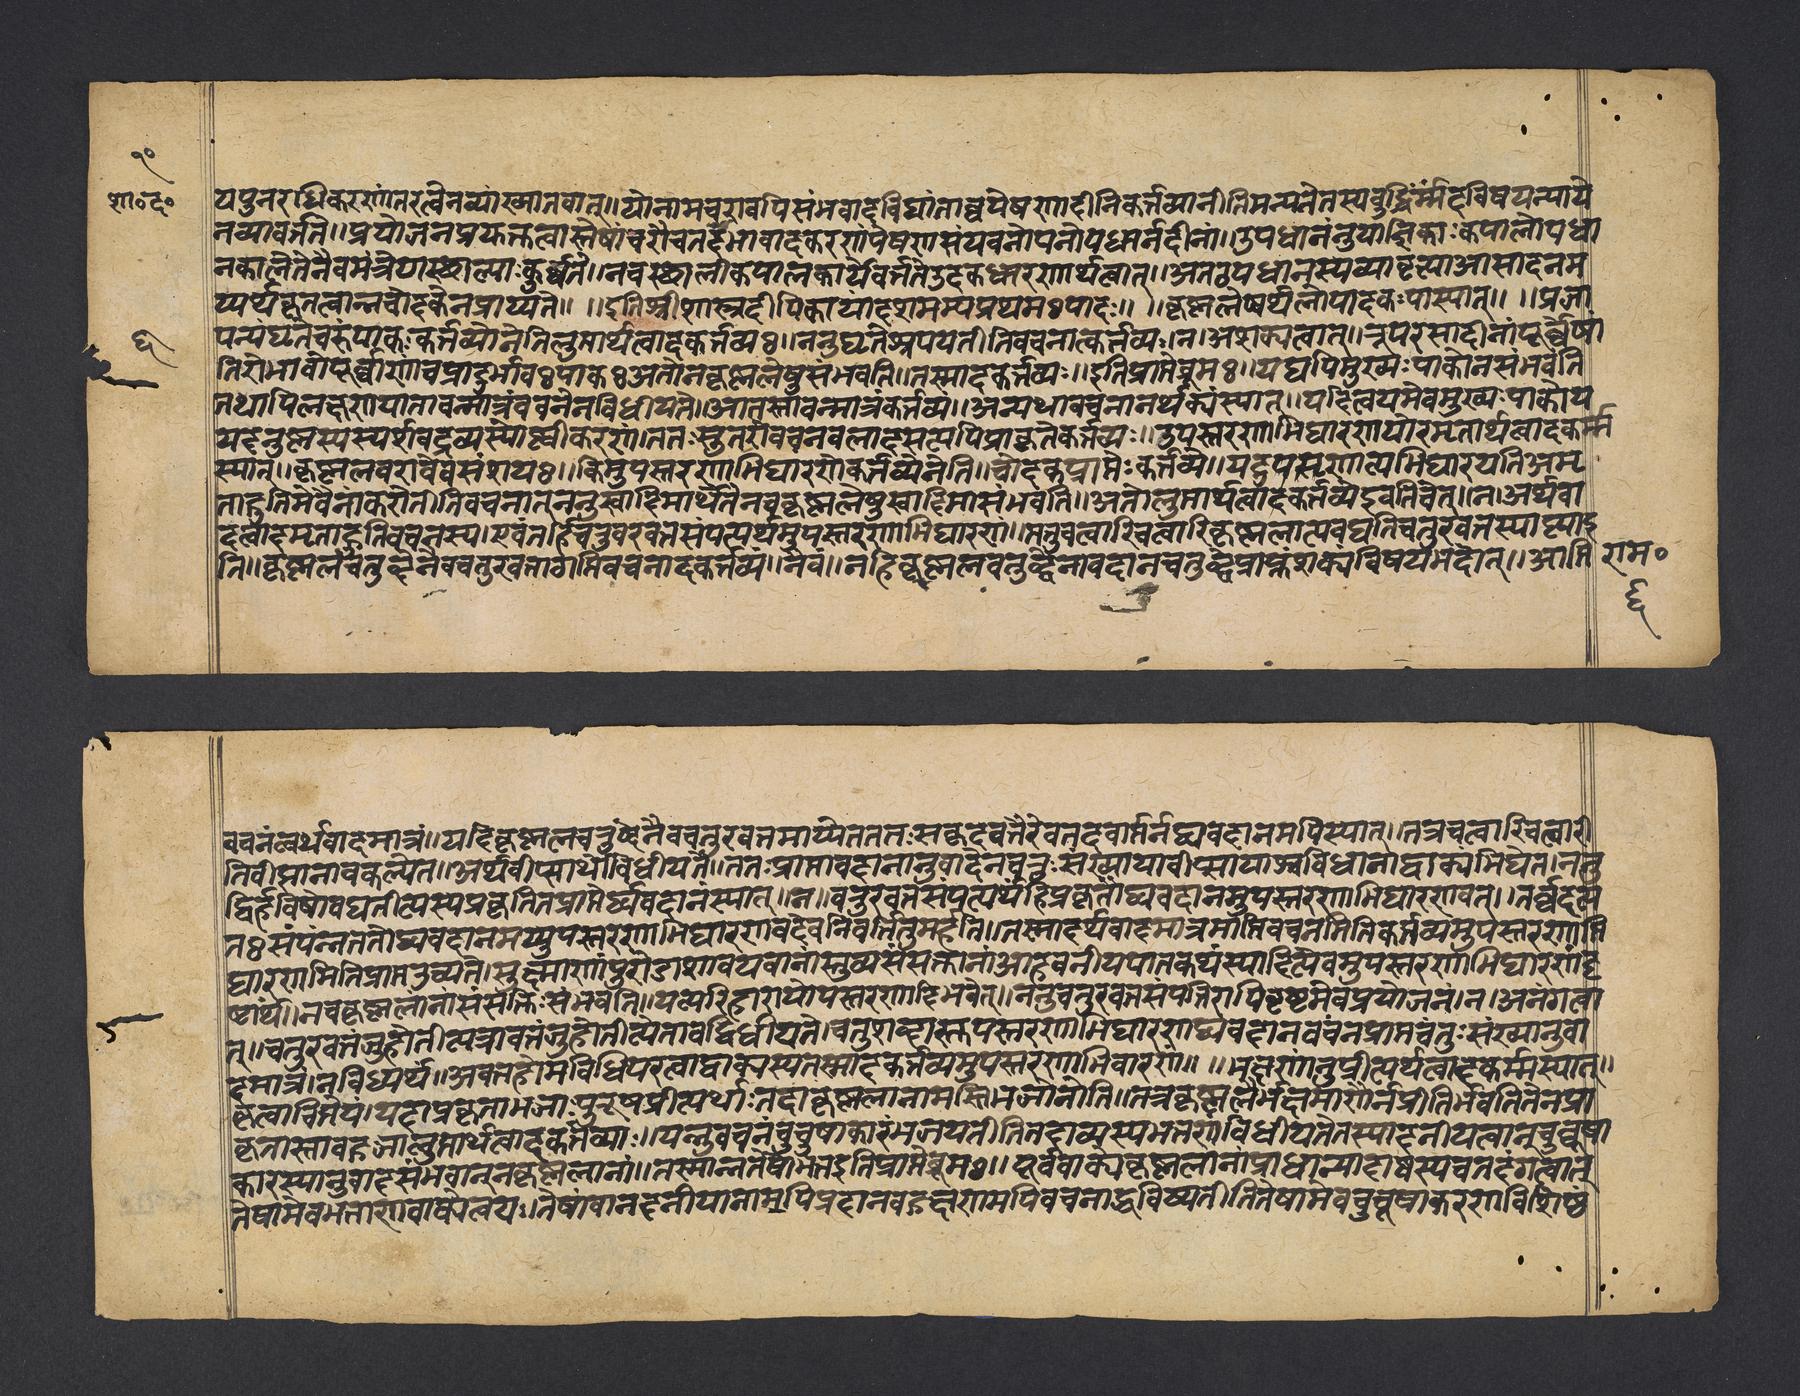 १०
शा०द०
यपुनरधिकरणांतरत्वेनव्याख्यातवान्॥योनामचरावपिसंभवादविघातात्त्वपेषणादीनिकर्त्तव्यानीतिमन्यतेतस्यबुद्धिर्म्मंदविषयन्याये
नव्यावर्त्तते॥प्रयोजनप्रयुक्तत्वात्तेषांचरौचतदभावादकरणंपेषणसंयवनोपनोपधानर्नदीनां॥उपधानंतुयाज्ञिकाःकपालोपधा
नकालेतेनैवमंत्रेणस्थाल्याःकुर्व्वते॥नचस्थालीकपालकार्येवर्त्ततेउदकधारणार्थत्वात्॥अतउपधानस्यव्यावृत्त्याआसादनम
प्यर्थकृतत्वान्नचोदकेनप्राप्यते॥ ॥इतिश्रीशास्त्रदीपिकायांदशमस्यप्रथमःपादः॥ ॥कृष्णलेष्वर्थलोपादकःपास्यात्॥ ॥प्रजा
पत्यंघृतेचरुंपाकःकर्त्तव्योनेतिलुप्तार्थत्वादकर्त्तव्यः॥ननुघृतेश्रपयतीतिवचनात्कर्त्तव्यः।न।अशक्यत्वात्॥रूपरसादीनांपूर्व्वेषां
तिरोभावोपूर्व्वाणांचप्रादुर्भावःपाकःअतोनकृष्णलेषुसंभवति॥तस्मादकर्त्तव्यः॥इतिप्राप्तेब्रूमः॥यद्यपिमुख्यःपाकोनसंभवति
तथापिलक्षणयातावन्मात्रंवचनेनविधीयते॥आतस्तावन्मात्रंकर्त्तव्यं॥अन्यथावचनानर्थक्यंस्यात्॥यदित्वयमेवमुख्यःपाकोय
यदनुष्णस्पस्पर्शवद्रव्यस्योष्णीकरणं।ततःसुतरांवचनबलादसत्यपिप्राकृतेकर्त्तव्यः॥उपस्तरणाभिघारणयोरमृतार्थत्वादकर्म्म
स्यात्॥कृष्णलचरावेवसंशयः॥किमुपस्तरणाभिघारणेकर्त्तव्येनेति॥चोदकप्राप्तेःकर्त्तव्ये॥यदुपस्तृणात्यभिघारयतिअमृ
ताहुतिमेवैनांकरोतीतिवचनात्ननुस्वादिमार्थेतेनचकृष्णलेषुस्वादिमासंभवति॥अतोलुप्तार्थत्वादकर्त्तव्येइवतिचेत्।न।अर्थवा
दत्वादमृताहुतिवचनस्य।एवंतर्हिचतुवरवत्तसंपत्यर्थमुपस्तरणाभिघारणं॥मनुचत्वारिचत्वारिकृष्णलात्यवद्यतिचतुरवत्तस्याप्त्याइ
ति॥कृष्णलचतुष्टेनैवचतुरवत्ताप्तिवचनादकर्त्तव्यं॥नैवं॥नहिकृष्णलचतुष्टेनावदानचतुष्ट्वंप्राप्तुंशक्यविषयभेदात्॥आप्ति
राम०
६
६
वचनंत्वर्थवादमात्रं॥यदिकृष्णलचतुष्टेनैवचतुरवत्तमाप्येतततःसकृदवत्तैरेवतदवाप्तेर्नद्व्यवदानमपिस्यात्।तत्रचत्वारिचत्वारी
तिवीप्सानावकल्पेत॥अथवीप्सार्थोविधीयते॥ततःप्राप्तावदानानुवादेनचतुःसंख्यायावीप्सायाश्चविधानाद्वाक्यंभिद्येत।ननु
द्विर्हविषोवद्यतीत्यस्यप्रकृतितप्राप्तेर्द्व्यवदानंस्यात्॥न॥चतुरवत्तसंपत्यर्थंहिप्रकृतौद्व्यवदानमुपस्तरणाभिघारणवत्॥तच्चेदत्य
तःसंपन्नंततोद्व्यवदानमप्युपस्तरणाभिघारणवदेवनिवर्त्तितुमर्हति॥तस्मादर्थवादमात्रमाप्तिवचनमितिकर्त्तव्यमुपस्तरणाभि
घारणमितिप्राप्तउच्यते।स्तुक्ष्माणांपुरोडाशावयवानांस्तुव्यसंसक्तानांआहवनीयपातकथंस्यादित्येवमुपस्तरणाभिघारणंदृ
ष्टार्थं॥नचकृष्णलानांसंसक्तिःसंभवति॥यत्परिहारायोपस्तरणादिभवेत्॥ननुचतुरवत्तसंपत्तिरपिदृष्टमेवंप्रयोजनं।न।अनंगत्वा
त्॥चतुरवत्तंजुहोतीत्यत्रावत्तंजुहोतीत्येतावद्विधीयते।चतुशब्दास्तूपस्तरणाभिघारणद्व्यवदानवचनप्राप्तचतुःसंख्यानुवा
दमात्रं।नविध्यर्थं॥अवत्तहोमविधिपरत्वाद्वाक्यस्यतस्मादकर्त्तव्यमुपस्तरणाभिघारणं॥ ॥भक्षणांतुप्रीत्यर्थत्वादकर्म्मस्यात्॥
कृत्वाचिंतेयं।यदाप्रकृताभक्षाःपुरुषप्रीत्यर्थाःतदाकृष्णलानामस्तिभक्षोनेति॥तत्रकृष्णलैर्भक्ष्यमाणैर्नप्रीतिर्भवतितेनप्रा
कृतास्तावद्भक्षालुप्तार्थत्वादकर्त्तव्याः॥यत्तुवचनंचुचुषाकारंभक्षयंतीतितदाव्यस्यभक्षणंविधीयतेतस्यादनीयत्वात्चुचूषा
कारस्यानुवादसंभवान्नकृष्णलानां॥तस्मान्नतेषांभक्षइतिप्राप्तेब्रूमः॥पूर्ववाक्येकृष्णलानांप्राधान्यादाषस्यचतदंगत्वात्
तेषामेवभक्षणंवाक्येत्वयः।तेषांवानदनीयानामपिप्रदानवद्भक्षणमपिवचनाद्भविष्यतीतितेषामेवचुचूषाकरणविशिष्टं